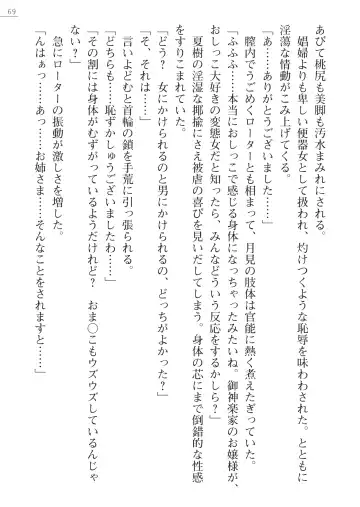 69
あびて桃尻も美脚も汚水まみれにされる。
娼婦よりも卑しい便器女として扱われ、灼けつくような恥辱を味わわされる。とともに
淫蕩な情動がこみ上げてくる。
「あ……ありがとうございました……」
膣内でうごめくローターとも相まって、月見の肢体は官能に熱く煮えたぎっていた。
「ふふふ……本当におしっこで感じる身体になっちゃったみたいね。御神楽家のお嬢様が、
おしっこ大好きの変態女だと知ったら、みんなどういう反応をするかしら？」
夏樹の淫湿な揶揄にさえ被虐の喜びを見いだしてしまう。身体の芯にまで倒錯的な性感
をすりこまれていた。
「どう？　女にかけられるのと男にかけられるの、どっちがよかった？」
「そ、それは……」
言いよどむと首輪の鎖を手荒に引っ張られる。
「どちらも……恥ずかしゅうございましたわ……」
「その割には身体がむずがっているようだけれど？　おま◯こもウズウズしているんじゃ
ない？」
急にローターの振動が激しさを増した。
「んはぁっ……あっ……お姉さま……そんなことをされますと……」